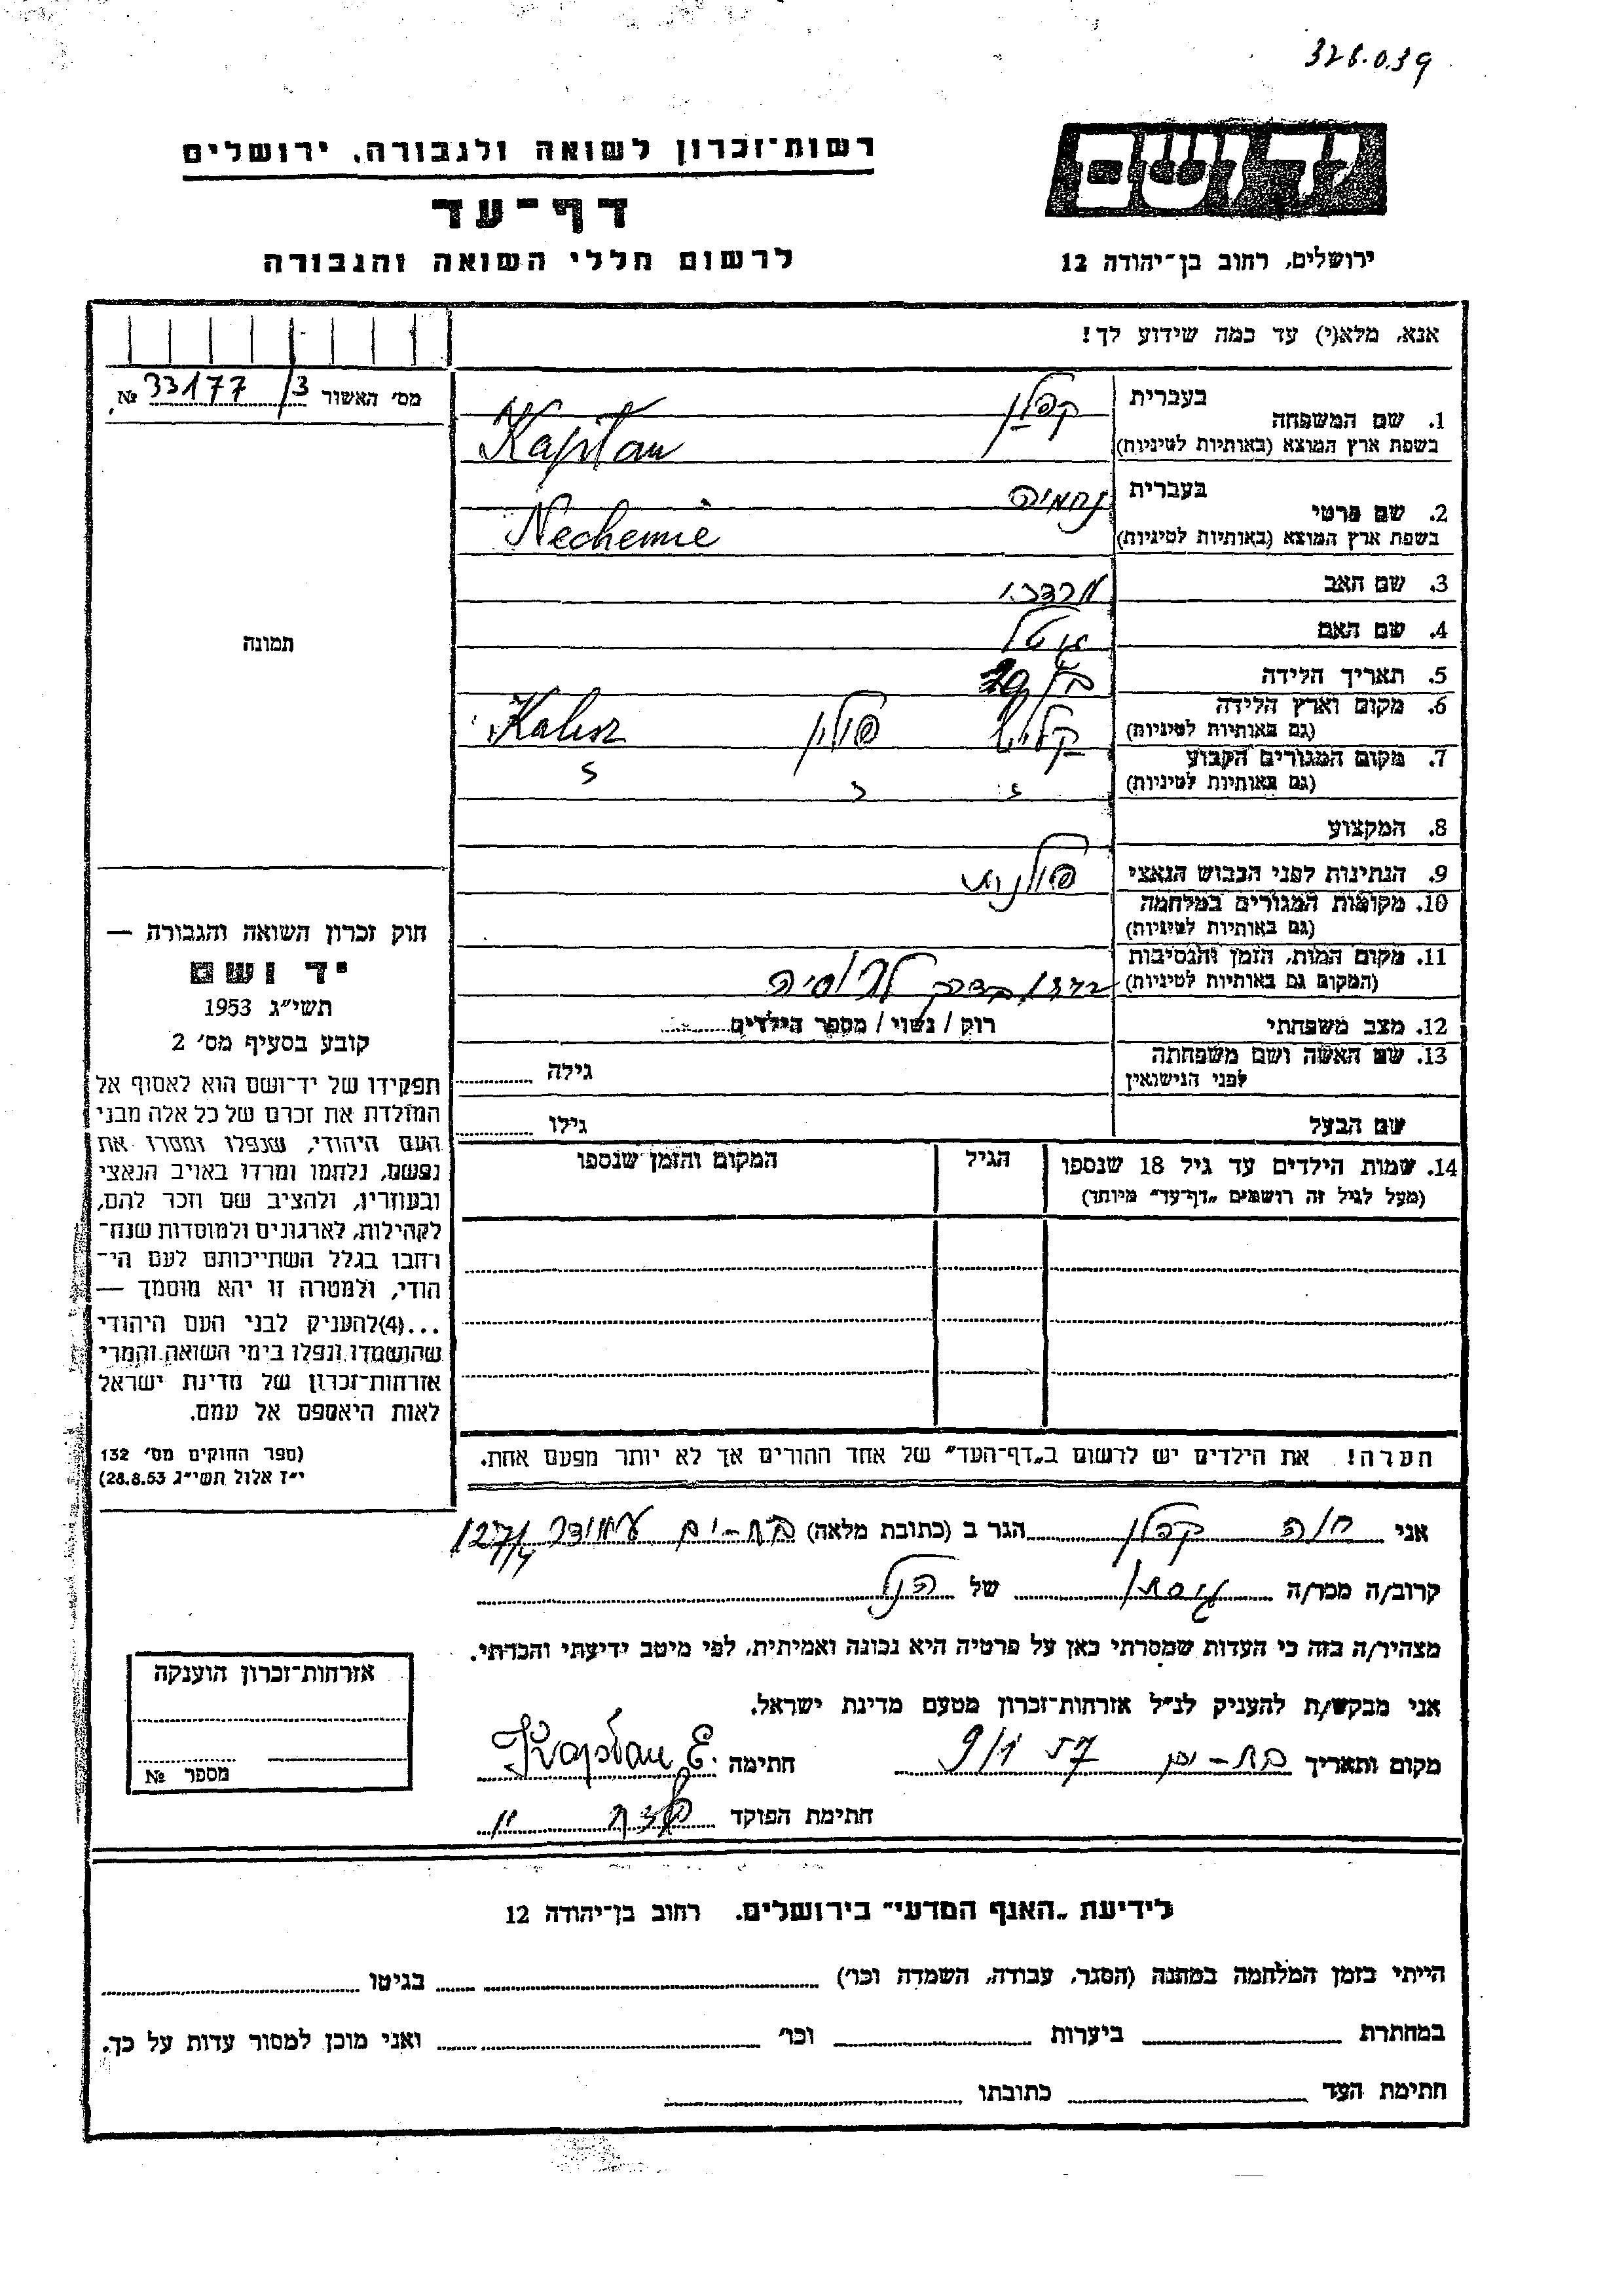 328.039
רשות־זכרון לשואה ולגבורה, ירושלים
דף־עד
לרשום חללי השואה והגבורה
יד ושם
ירושלים, רחוב בן־יהודה 12
אנא, מלא(י) עד כמה שידוע לך!
מס׳ האשור 33177/3 №
1. שם המשפחה
בעברית קפלן
בשפת ארץ המוצא (באותיות לטיניות) Kaplan
2. שם פרטי
בעברית נחמיה
בשפת ארץ המוצא (באותיות לטיניות) Nechemie
3. שם האב מרדכי
4. שם האם
5. תאריך הלידה בן 29
6. מקום וארץ הלידה קליש פולין Kalisz
(גם באותיות לטיניות)
7. מקום המגורים הקבוע
(גם באותיות לטיניות)
8. המקצוע
9. הנתינות לפני הכבוש הנאצי פולנית
10. מקומות המגורים במלחמה
(גם באותיות לטיניות)
11. מקום המות, הזמן והנסיבות בדרך לרוסיה
(המקום גם באותיות לטיניות)
12. מצב משפחתי רוק / נשוי / מספר הילדים
13. שם האשה ושם משפחתה
לפני הנישואין
גילה
שם הבעל גילו
14. שמות הילדים עד גיל 18 שנספו
(מעל לגיל זה רושמים „דף־עד״ מיוחד)
הגיל
המקום והזמן שנספו
תמונה
חוק זכרון השואה והגבורה —
יד ושם
תשי״ג 1953
קובע בסעיף מס׳ 2
תפקידו של יד־ושם הוא לאסוף אל
המולדת את זכרם של כל אלה מבני
העם היהודי, שנפלו ומסרו את
נפשם, נלחמו ומרדו באויב הנאצי
ובעוזריו, ולהציב שם וזכר להם,
לקהילות, לארגונים ולמוסדות שנח־
רחבו בגלל השתייכותם לעם הי־
הודי, ולמטרה זו יהא מוסמך —
...(4)להעניק לבני העם היהודי
שהושמדו ונפלו בימי השואה והמרי
אזרחות־זכרון של מדינת ישראל
לאות היאספם אל עמם.
(ספר החוקים מס׳ 132
י״ז אלול תשי״ג 28.8.53)
הערה! את הילדים יש לרשום ב„דף־העד״ של אחד ההורים אך לא יותר מפעם אחת.
אני חוה קפלן הגר ב (כתובת מלאה) בת-ים עמידר 127/4
קרוב/ה מכר/ה גיסתו של הנ״ל
מצהיר/ה בזה כי העדות שמסרתי כאן על פרטיה היא נכונה ואמיתית, לפי מיטב ידיעתי והכרתי.
אני מבקש/ת להעניק לנ״ל אזרחות־זכרון מטעם מדינת ישראל.
מקום ותאריך בת-ים 9/1 57 חתימה Kaplan E.
חתימת הפוקד
אזרחות־זכרון הוענקה
מספר №
לידיעת „האגף המדעי״ בירושלים. רחוב בן־יהודה 12
הייתי בזמן המלחמה במחנה (הסגר, עבודה, השמדה וכו׳) בגיטו
במחתרת ביערות וכו׳ ואני מוכן למסור עדות על כך.
חתימת העד כתובתו